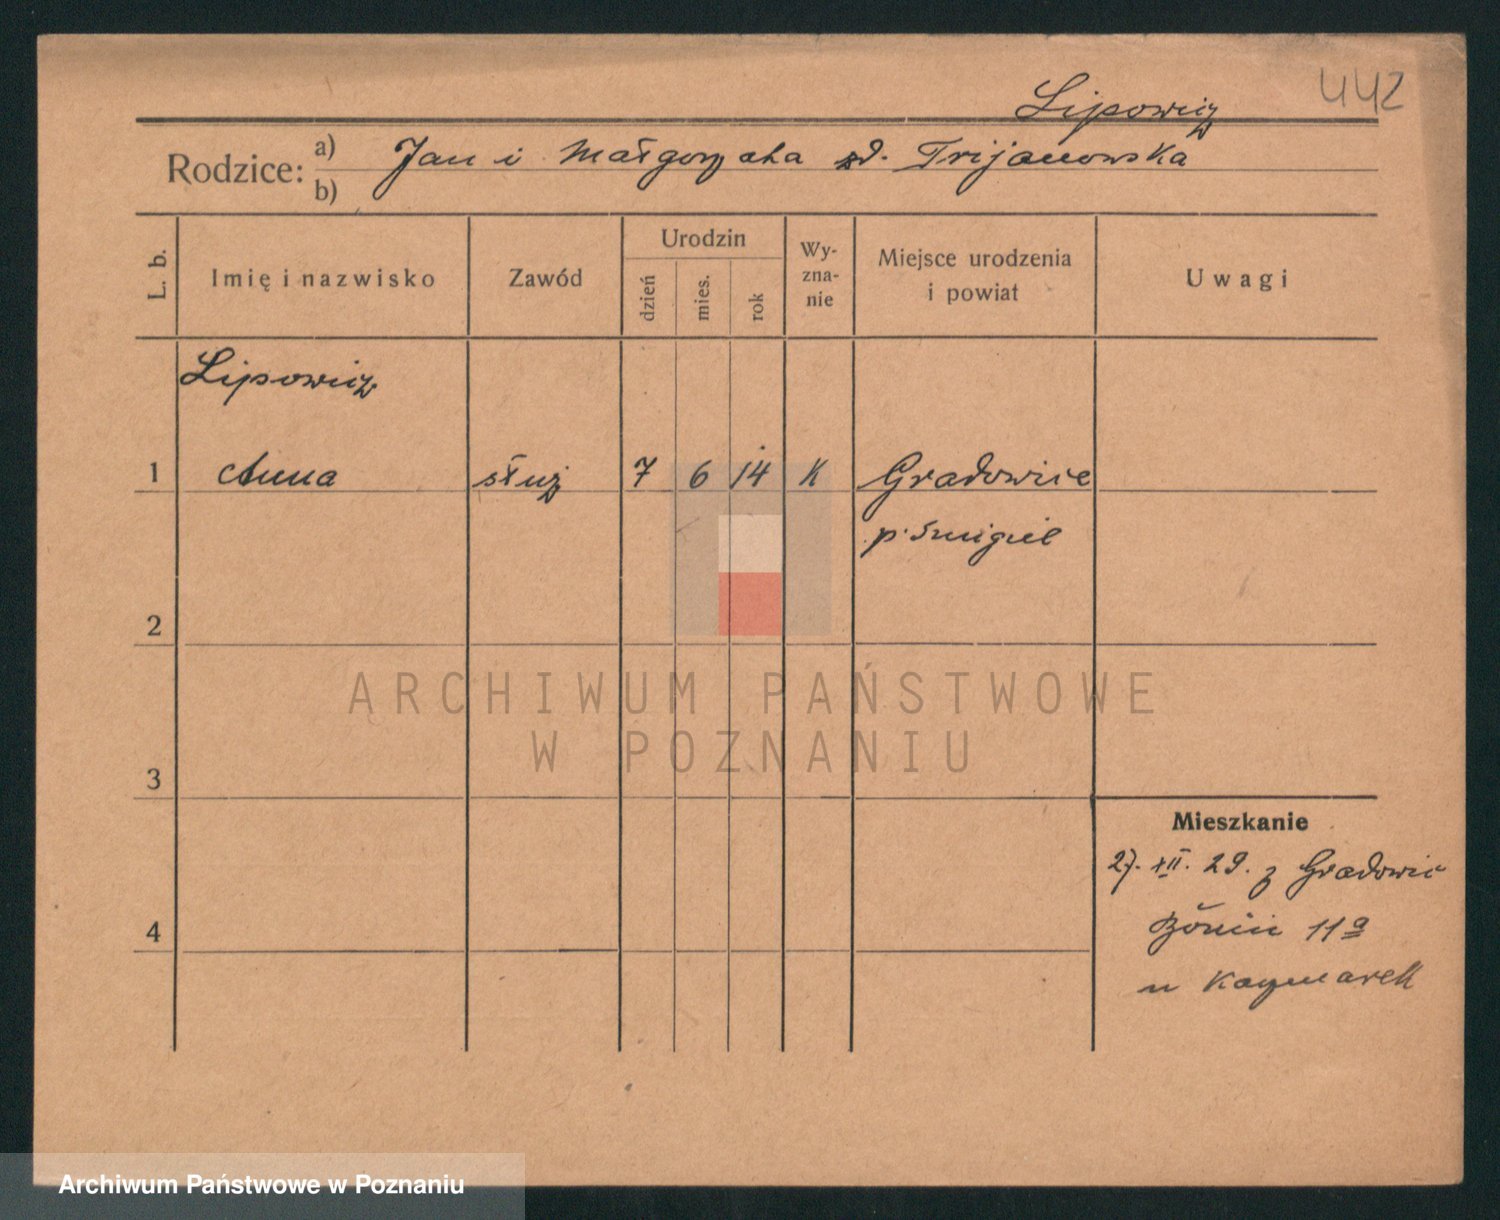 442
Lipowicz
Rodzice: a) Jan i Małgorzata zd. Trijanowska
b)
L. b. Imię i nazwisko Zawód Urodzin dzień mies. rok Wy-zna-nie Miejsce urodzenia i powiat Uwagi
Lipowicz
1 Anna służ 7 6 14 K Gradowice
p. Śmigiel
2
ARCHIWUM PAŃSTWOWE
W POZNANIU
3
Mieszkanie
27. XII. 29. z Gradowic
4
11a
u Kaczmarek
Archiwum Państwowe w Poznaniu